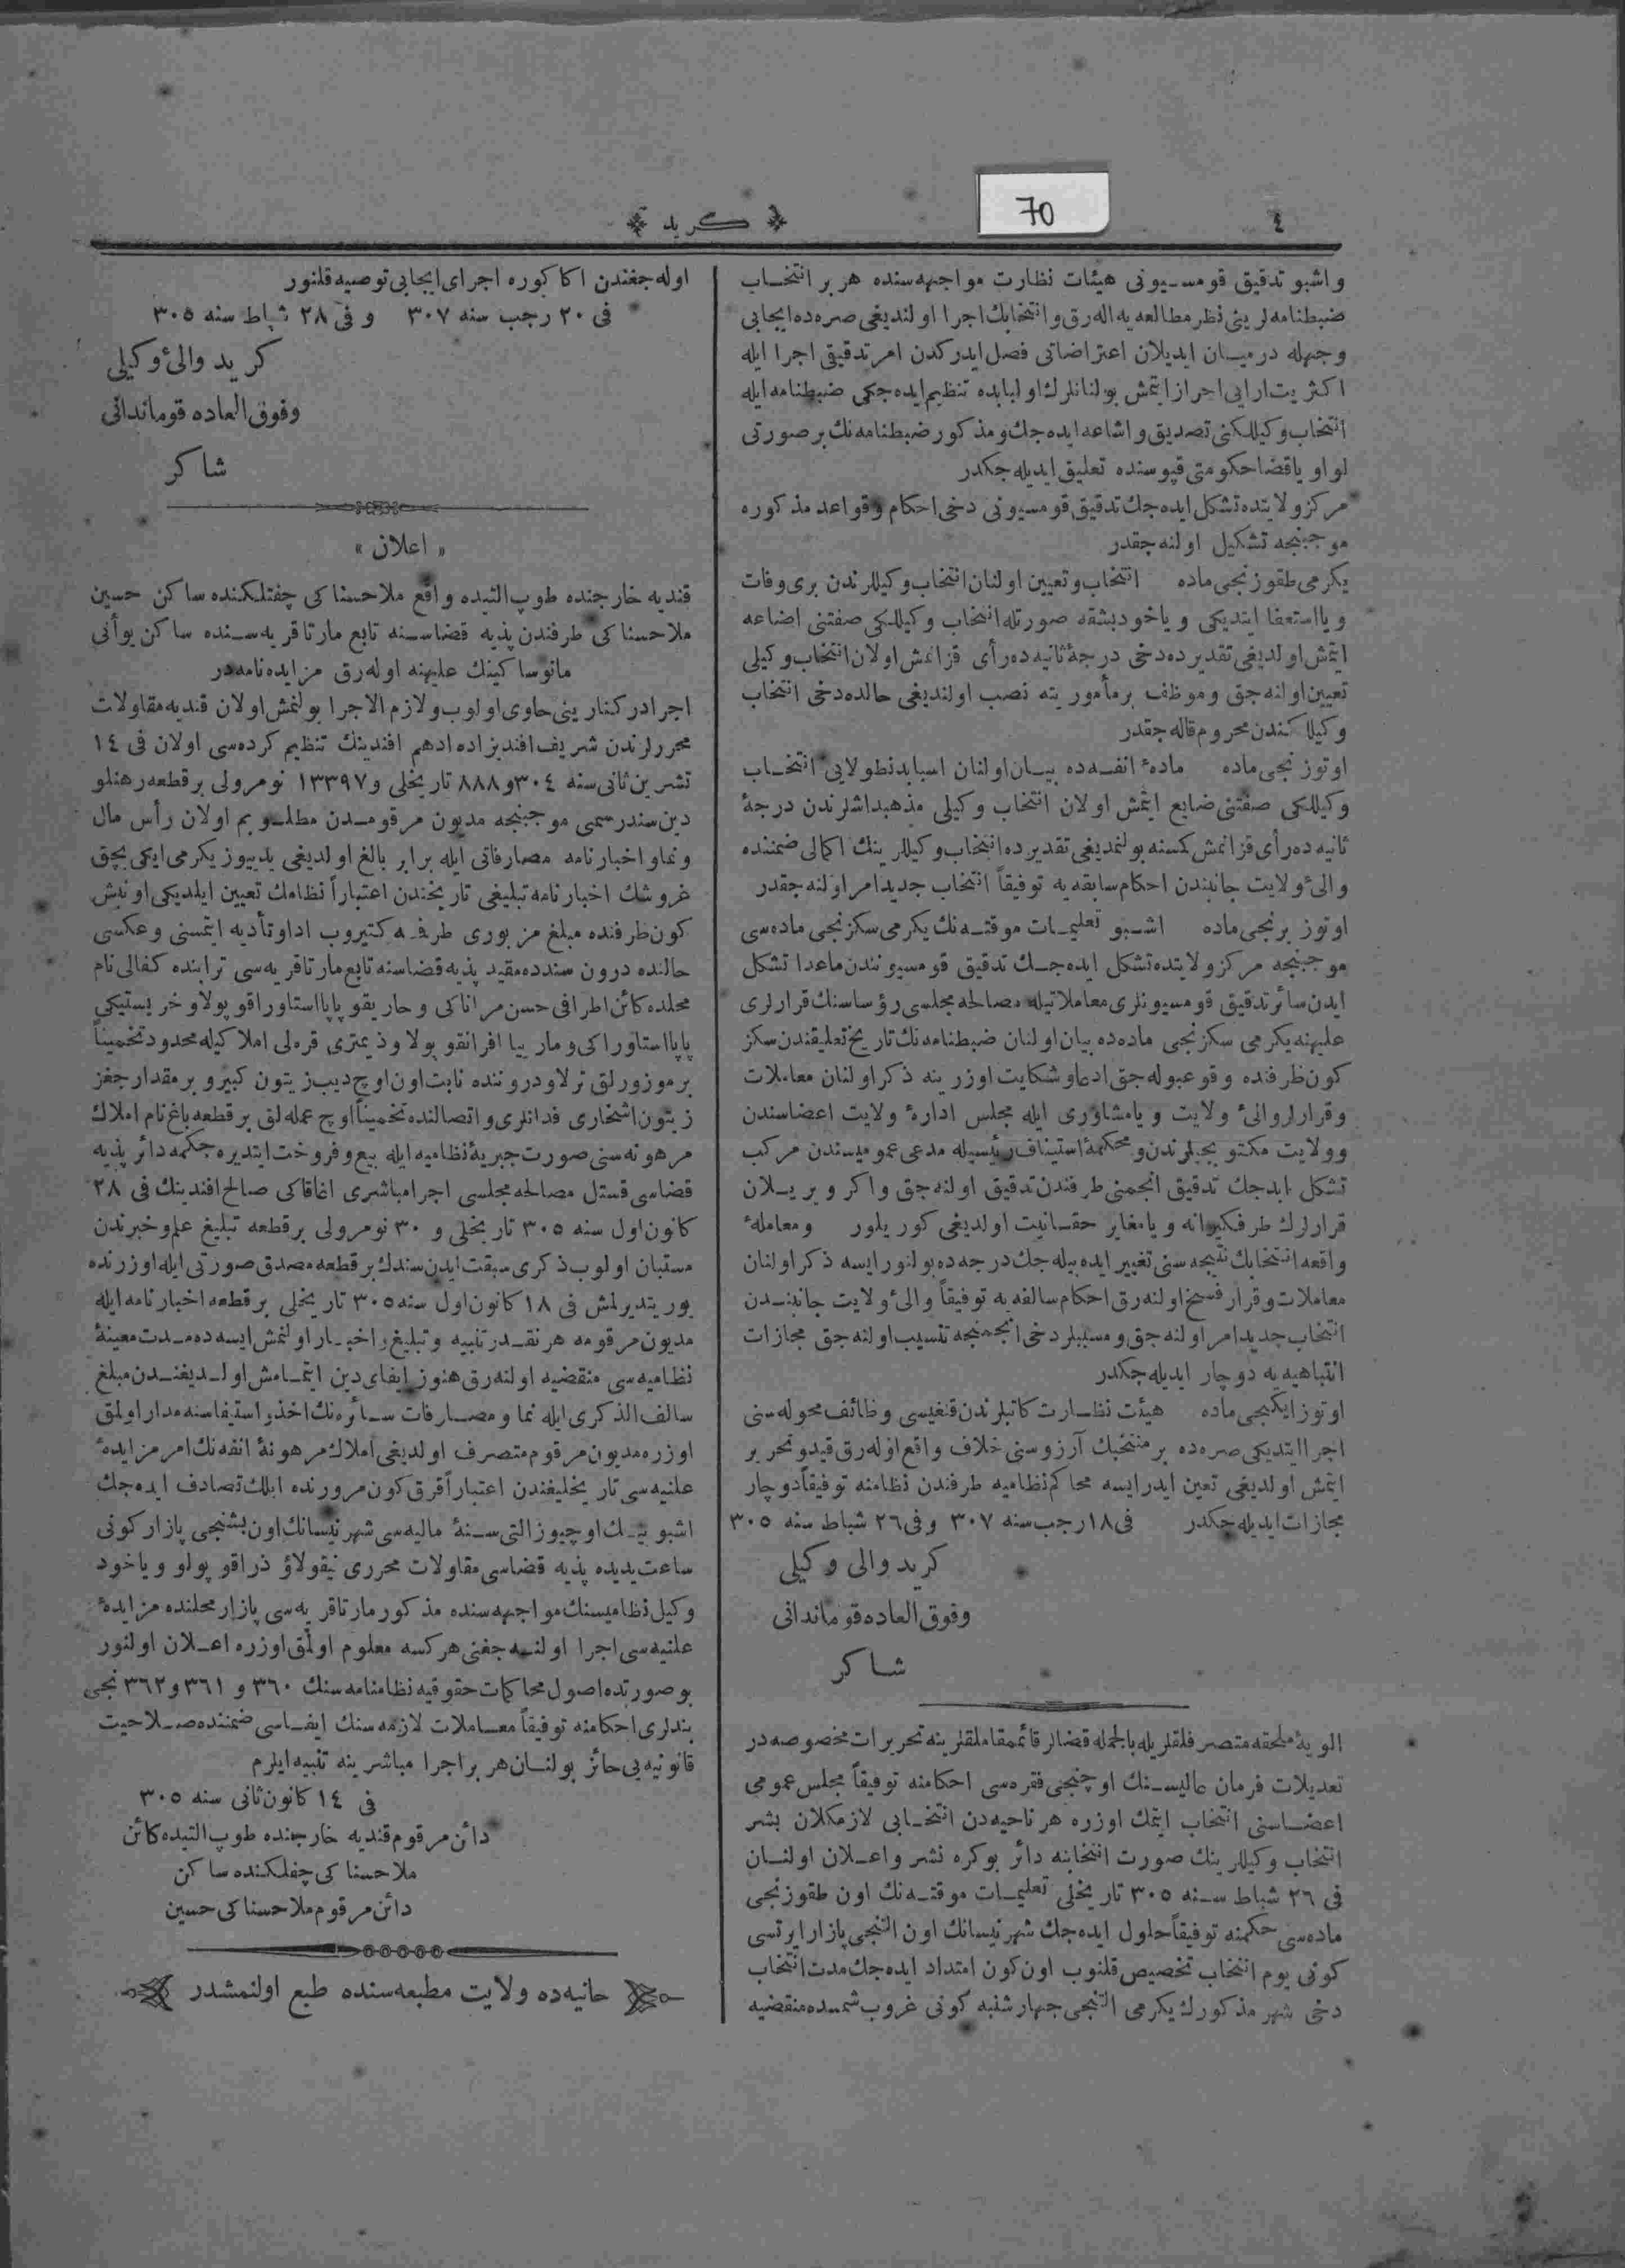 ٤
70
﴿ كريد ﴾
واشبو تدقيق قومسيونى هيئات نظارت مواجهه سنده هر بر انتخاب
ضبطنامه لرينى نظر مطالعه يه اله رق و انتخابك اجرا اولنديغى صره ده ايجابى
وجهله درميان ايديلان اعتراضاتى فصل ايدركدن امر تدقيقى اجرا ايله
اكثريت ارايى احراز ايتمش بولنانلرك اولبابده تنظيم ايده جكى ضبطنامه ايله
انتخاب وكيللكنى تصديق و اشاعه ايده جك و مذكور ضبطنامه نك بر صورتى
لوا و يا قضا حكومتى قپوسنده تعليق ايديله جكدر
مركز ولايتده تشكل ايده جك تدقيق قومسيونى دخى احكام و قواعد مذكوره
موجبنجه تشكيل اولنه جقدر
يكرمى طقوزنجى ماده انتخاب و تعيين اولنان انتخاب وكيللرندن برى وفات
و يا استعفا ايتديكى و ياخود بشقه صورتله انتخاب وكيللكى صفتنى اضاعه
ايتمش اولديغى تقديرده دخى درجهٔ ثانيه ده رأى قزانمش اولان انتخاب وكيلى
تعيين اولنه جق و موظف بر مأموريته نصب اولنديغى حالده دخى انتخاب
وكيللكندن محروم قاله جقدر
اوتوزنجى ماده مادهٔ انفه ده بيان اولنان اسبابدنطولايى انتخاب
وكيللكى صفتنى ضايع ايتمش اولان انتخاب وكيلى مذهبداشلرندن درجهٔ
ثانيه ده رأى قزانمش كمسنه بولنمديغى تقديرده انتخاب وكيللرينك اكمالى ضمننده
والىٔ ولايت جانبندن احكام سابقه يه توفيقاً انتخاب جديد امر اولنه جقدر
اوتوز برنجى ماده اشبو تعليمات موقته نك يكرمى سكزنجى ماده سى
موجبنجه مركز ولايتده تشكل ايده جك تدقيق قومسيونندن ماعدا تشكل
ايدن سائر تدقيق قومسيونلرى معاملاتيله مصالحه مجلسى رؤساسنك قرارلرى
عليهنه يكرمى سكزنجى ماده ده بيان اولنان ضبطنامه نك تاريخ تعليقندن سكز
كون ظرفنده وقوعبوله جق ادعا و شكايت اوزرينه ذكر اولنان معاملات
و قرارلر والىٔ ولايت و يا مشاورى ايله مجلس ادارهٔ ولايت اعضاسندن
و ولايت مكتوبجيلرندن و محكمهٔ استيناف رئيسيله مدعى عموميسندن مركب
تشكل ايده جك تدقيق انجمنى طرفندن تدقيق اولنه جق و اكر ويريلان
قرارلرك طرفكيرانه و يا مغاير حقانيت اولديغى كوريلور و معاملهٔ
واقعه انتخابك نتيجه سنى تغيير ايده بيله جك درجه ده بولنور ايسه ذكر اولنان
معاملات و قرار فسخ اولنه رق احكام سالفه يه توفيقاً والىٔ ولايت جانبندن
انتخاب جديد امر اولنه جق و مسببلر دخى انجمنجه تنسيب اولنه جق مجازات
انتباهيه يه دوچار ايديله جكدر
اوتوز ايكنجى ماده هيئت نظارت كاتبلرندن قنغيسى وظائف محوله سنى
اجرا ايتديكى صره ده بر منتخبك آرزوسنى خلاف واقع اوله رق قيد و تحرير
ايتمش اولديغى تعين ايدر ايسه محاكم نظاميه طرفندن نظامنه توفيقاً دوچار
مجازات ايديله جكدر فى ١٨ رجب سنه ٣٠٧ و فى ٢٦ شباط سنه ٣٠٥
كريد والى وكيلى
وفوق العاده قوماندانى
شاكر
الويهٔ ملحقه متصرفلقلريله بالجمله قضالر قائممقاملقلرينه تحريرات مخصوصه در
تعديلات فرمان عاليسنك اوچنجى فقره سى احكامنه توفيقاً مجلس عمومى
اعضاسنى انتخاب ايتمك اوزره هر ناحيه دن انتخابى لازمكلان بشر
انتخاب وكيللرينك صورت انتخابنه دائر بوكره نشر و اعلان اولنان
فى ٢٦ شباط سنه ٣٠٥ تاريخلى تعليمات موقته نك اون طقوزنجى
ماده سى حكمنه توفيقاً حلول ايده جك شهر نيسانك اون التنجى پازار ايرتسى
كونى يوم انتخاب تخصيص قلنوب اون كون امتداد ايده جك مدت انتخاب
دخى شهر مذكورك يكرمى التنجى چهارشنبه كونى غروب شمسده منقضيه
اوله جغندن اكا كوره اجراى ايجابى توصيه قلنور
فى ٢٠ رجب سنه ٣٠٧ و فى ٢٨ شباط سنه ٣٠٥
كريد والىٔ وكيلى
وفوق العاده قوماندانى
شاكر
« اعلان »
قنديه خارجنده طوپ التيده واقع ملا حسناكى چفتلكنده ساكن حسين
ملا حسناكى طرفندن پذيه قضاسنه تابع مارتا قريه سنده ساكن يوأنى
مانوساكينك عليهنه اوله رق مزايده نامه در
اجرا دركنارينى حاوى اولوب ولازم الاجرا بولنمش اولان قنديه مقاولات
محررلرندن شريف افنديزاده ادهم افندينك تنظيم كرده سى اولان فى ١٤
تشرين ثانى سنه ٣٠٤ و ٨٨٨ تاريخلى و ١٣٣٩٧ نومرولى برقطعه رهنلو
دين سند رسمى موجبنجه مديون مرقومدن مطلوبم اولان رأس مال
ونما و اخبارنامه مصارفاتى ايله برابر بالغ اولديغى يديوز يكرمى ايكى بچق
غروشك اخبارنامه تبليغى تاريخندن اعتباراً نظامك تعيين ايلديكى اونبش
كون ظرفنده مبلغ مزبورى طرفمه كتيروب ادا و تأديه ايتمسنى و عكسى
حالنده درون سندده مقيد پذيه قضاسنه تابع مارتا قريه سى ترابنده كفالى نام
محلده كائن اطرافى حسن مراناكى و حاريقو پاپااستاوراقوپولا و خريستيكى
پاپااستاوراكى و ماريا افرانقوپولا و ذيمترى قره لى املاكيله محدود تخميناً
بر موزورلق ترلا و دروننده نابت اون اوچ ديب زيتون كبير و بر مقدار جغز
زيتون اشخارى فدانلرى و اتصالنده تخميناً اوچ عمله لق بر قطعه باغ نام املاك
مرهونه سنى صورت جبريهٔ نظاميه ايله بيع و فروخت ايتديره جكمه دائر پذيه
قضاسى قستل مصالحه مجلسى اجرا مباشرى اغاقاكى صالح افندينك فى ٢٨
كانون اول سنه ٣٠٥ تاريخلى و ٣٠ نومرولى برقطعه تبليغ علم و خبرندن
مستبان اولوب ذكرى سبقت ايدن سندك برقطعه مصدق صورتى ايله اوزرنده
يوريتديرلمش فى ١٨ كانون اول سنه ٣٠٥ تاريخلى برقطعه اخبارنامه ايله
مديون مرقومه هر نقدر تنبيه و تبليغ و اخبار اولنمش ايسه ده مدت معينهٔ
نظاميه سى منقضيه اولنه رق هنوز ايفاى دين ايتمامش اولديغندن مبلغ
سالف الذكرى ايله نما و مصارفات سائره نك اخذ و استيفاسنه مدار اولمق
اوزره مديون مرقوم متصرف اولديغى املاك مرهونهٔ انفه نك امر مزايدهٔ
علنيه سى تاريخليغندن اعتباراً قرق كون مرورنده ايلك تصادف ايده جك
اشبو بيك اوچيوز التى سنهٔ ماليه سى شهر نيسانك اون بشنجى پازار كونى
ساعت يديده پذيه قضاسى مقاولات محررى نيقولاؤ ذراقوپولو و ياخود
وكيل نظاميسنك مواجهه سنده مذكور مارتا قريه سى پازار محلنده مزايدهٔ
علنيه سى اجرا اولنه جغنى هركسه معلوم اولمق اوزره اعلان اولنور
بو صورتده اصول محاكمات حقوقيه نظامنامه سنك ٣٦٠ و ٣٦١ و ٣٦٢ نجى
بندلرى احكامنه توفيقاً معاملات لازمه سنك ايفاسى ضمننده صلاحيت
قانونيه يى حائز بولنان هر بر اجرا مباشرينه تنبيه ايلرم
فى ١٤ كانون ثانى سنه ٣٠٥
دائن مرقوم قنديه خارجنده طوپ التيده كائن
ملا حسناكى چفلكنده ساكن
دائن مرقوم ملا حسناكى حسين
حانيه ده ولايت مطبعه سنده طبع اولنمشدر